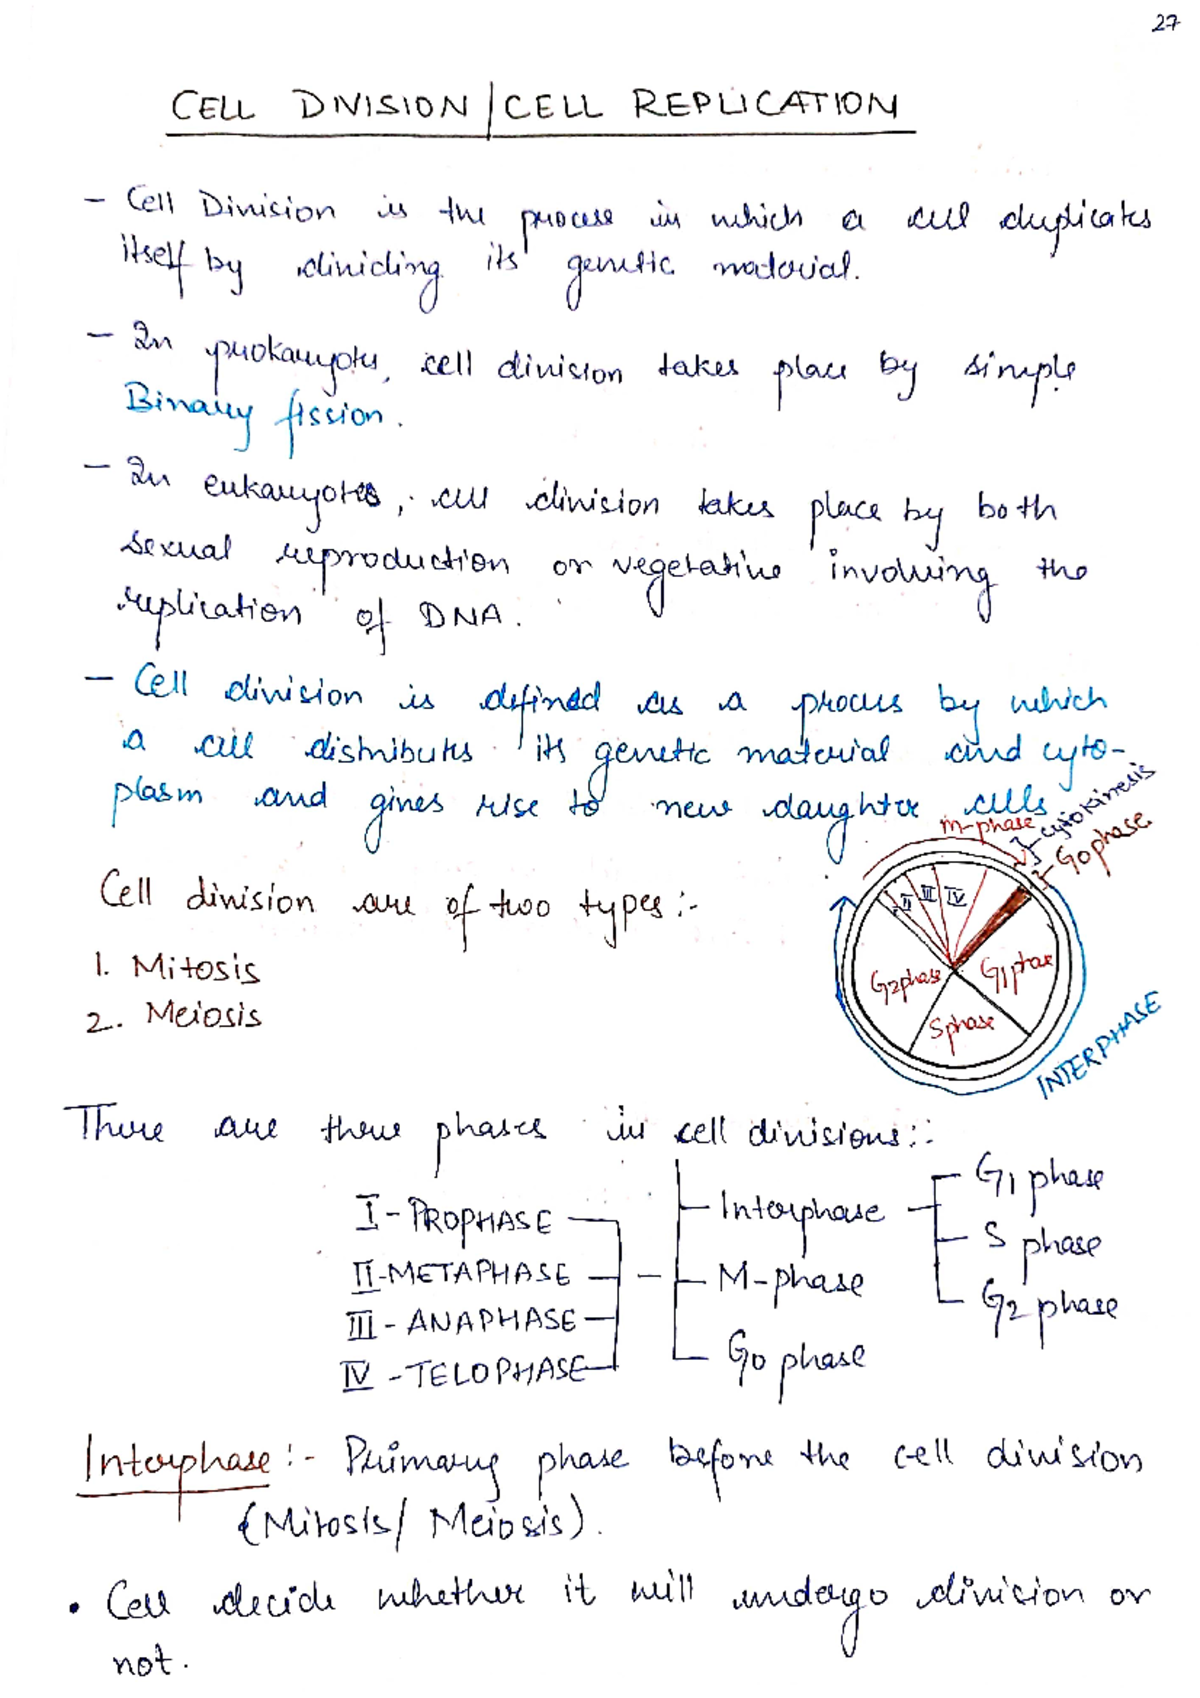 27
CELL DIVISION/CELL REPLICATION
- Cell Division is the process in which a cell duplicates
itself by dividing its genetic material.
- In prokaryotes, cell division takes place by simple
Binary fission.
- In eukaryotes, cell division takes place by both
sexual reproduction or vegetative involving the
replication of DNA.
- Cell division is defined as a process by which
a cell distributes its genetic material and cyto-
plasm and gives rise to new daughter cells.
m-phase
cytokinesis
G0 phase
II III IV
G2 phase
G1 phase
S phase
INTERPHASE
Cell division are of two types :-
1. Mitosis
2. Meiosis
There are three phases in cell divisions :-
I - PROPHASE
II - METAPHASE
III - ANAPHASE
IV - TELOPHASE
Interphase
M-phase
G0 phase
G1 phase
S phase
G2 phase
Interphase :- Primary phase before the cell division
(Mitosis/ Meiosis).
• Cell decide whether it will undergo division or
not.